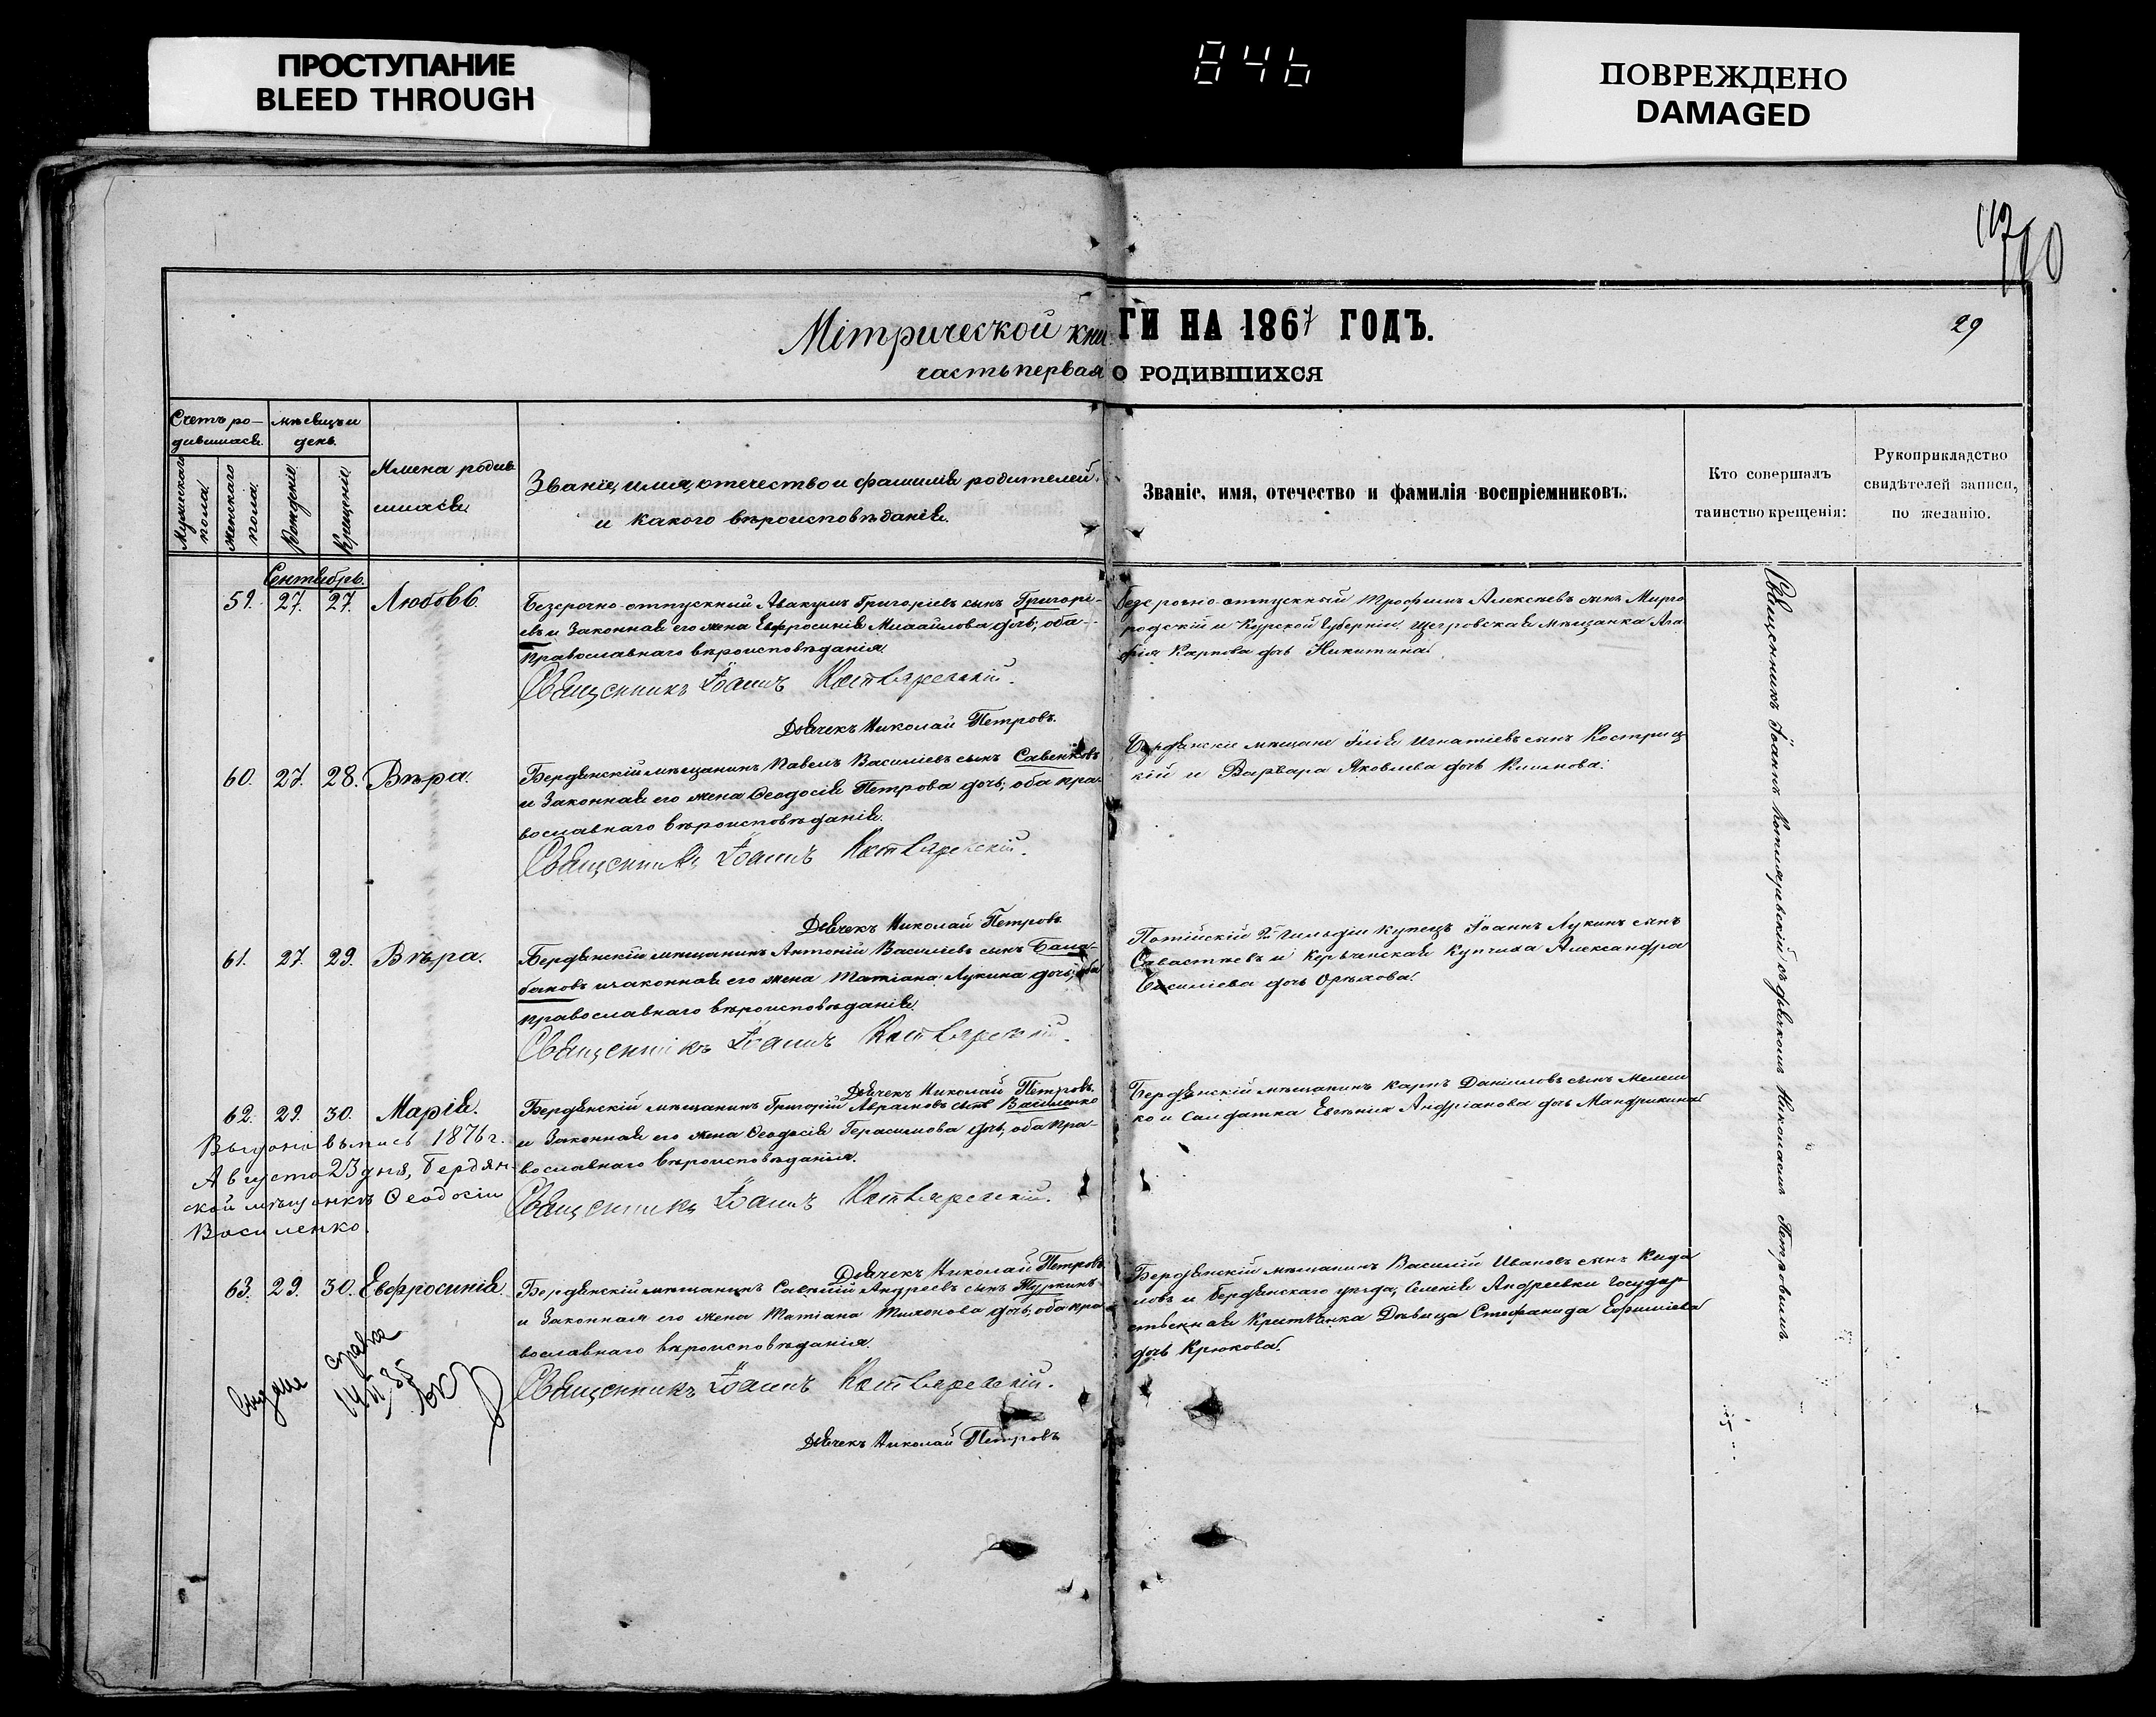 ПРОСТУПАНИЕ
BLEED THROUGH
846
ПОВРЕЖДЕНО
DAMAGED
117
29
Метрической книГИ НА 1867 ГОДЪ.
часть первая О РОДИВШИХСЯ
Счетъ ро-
дившихся.
мѣсяцъ и
день.
Мужескаго
пола.
Женскаго
пола.
Рожденія.
Крещенія.
Имена родив
шихся.
Званіе, имя, отечество и фамилія родителей,
и какого вѣроисповѣданія.
Званіе, имя, отечество и фамилія воспріемниковъ.
Кто совершалъ
таинство крещенія:
Рукоприкладство
свидѣтелей записи,
по желанію.
Сентябрь.
59. 27. 27. Любовь.
Безсрочно-отпускный Авакумъ Григоріевъ сынъ Григорі-
евъ и Законная его жена Евфросинія Михайлова дочь, оба
православнаго вѣроисповѣданія.
Священникъ Іоаннъ Котляревскій.
Дьячекъ Николай Петровъ.
Безсрочно-отпускный Трофимъ Алексѣевъ сынъ Мирго
родскій и Курской Губерніи, Щигровская мѣщанка Ага
фія Карпова дочь Никитина.
60. 27. 28. Вѣра.
Бердянскій мѣщанинъ Павелъ Василіевъ сынъ Савенковъ
и Законная его жена Ѳеодосія Петрова дочь, оба пра-
вославнаго вѣроисповѣданія.
Священникъ Іоаннъ Котляревскій.
Дьячекъ Николай Петровъ
Бердянскіе мѣщане Илія Игнатіевъ сынъ Кострищ
кій и Варвара Яковлева дочь Климова.
61. 27. 29. Вѣра.
Бердянскій мѣщанинъ Антоній Василіевъ сынъ Бала-
бановъ и законная его жена Татіана Лукина дочь, оба
православнаго вѣроисповѣданія.
Священникъ Іоаннъ Котляревскій.
Дьячекъ Николай Петровъ.
2й гильдіи Купецъ Іоаннъ Лукинъ сынъ
Савастѣевъ и Керчинская Купчиха Александра
Василіева дочь Орѣхова.
62. 29. 30. Марія.
Бердянскій мѣщанинъ Григорій Авраамовъ сынъ Василенко
и Законная его жена Ѳеодосія Герасимова дочь, оба пра-
вославнаго вѣроисповѣданія.
Священникъ Іоаннъ Котляревскій.
Дьячекъ Николай Петровъ
Бердянскій мѣщанинъ Карпъ Даніиловъ сынъ Мелеш
ко и Солдатка Евгенія Андріанова дочь Мандрыкина
Выдана выпись 1876 г.
Августа 23 дня, Бердян
ской мѣщанкѣ Ѳеодосіи
Василенко.
63. 29. 30. Евфросинія.
Бердянскій мѣщанинъ Савелій Андреевъ сынъ Туркинъ
и Законная его жена Татіана Тихонова дочь, оба пра
вославнаго вѣроисповѣданія.
Священникъ Іоаннъ Котляревскій.
Дьячекъ Николай Петровъ
Бердянскій мѣщанинъ Василій Ивановъ сынъ Кида
ловъ и Бердянскаго уѣзда, Селенія Андреевки Государ
ственная Крестьянка Дѣвица Стефанида Ефиміева
дочь Крюкова.
Священникъ Іоаннъ Котляревскій съ дьячкомъ Николаемъ Петровымъ